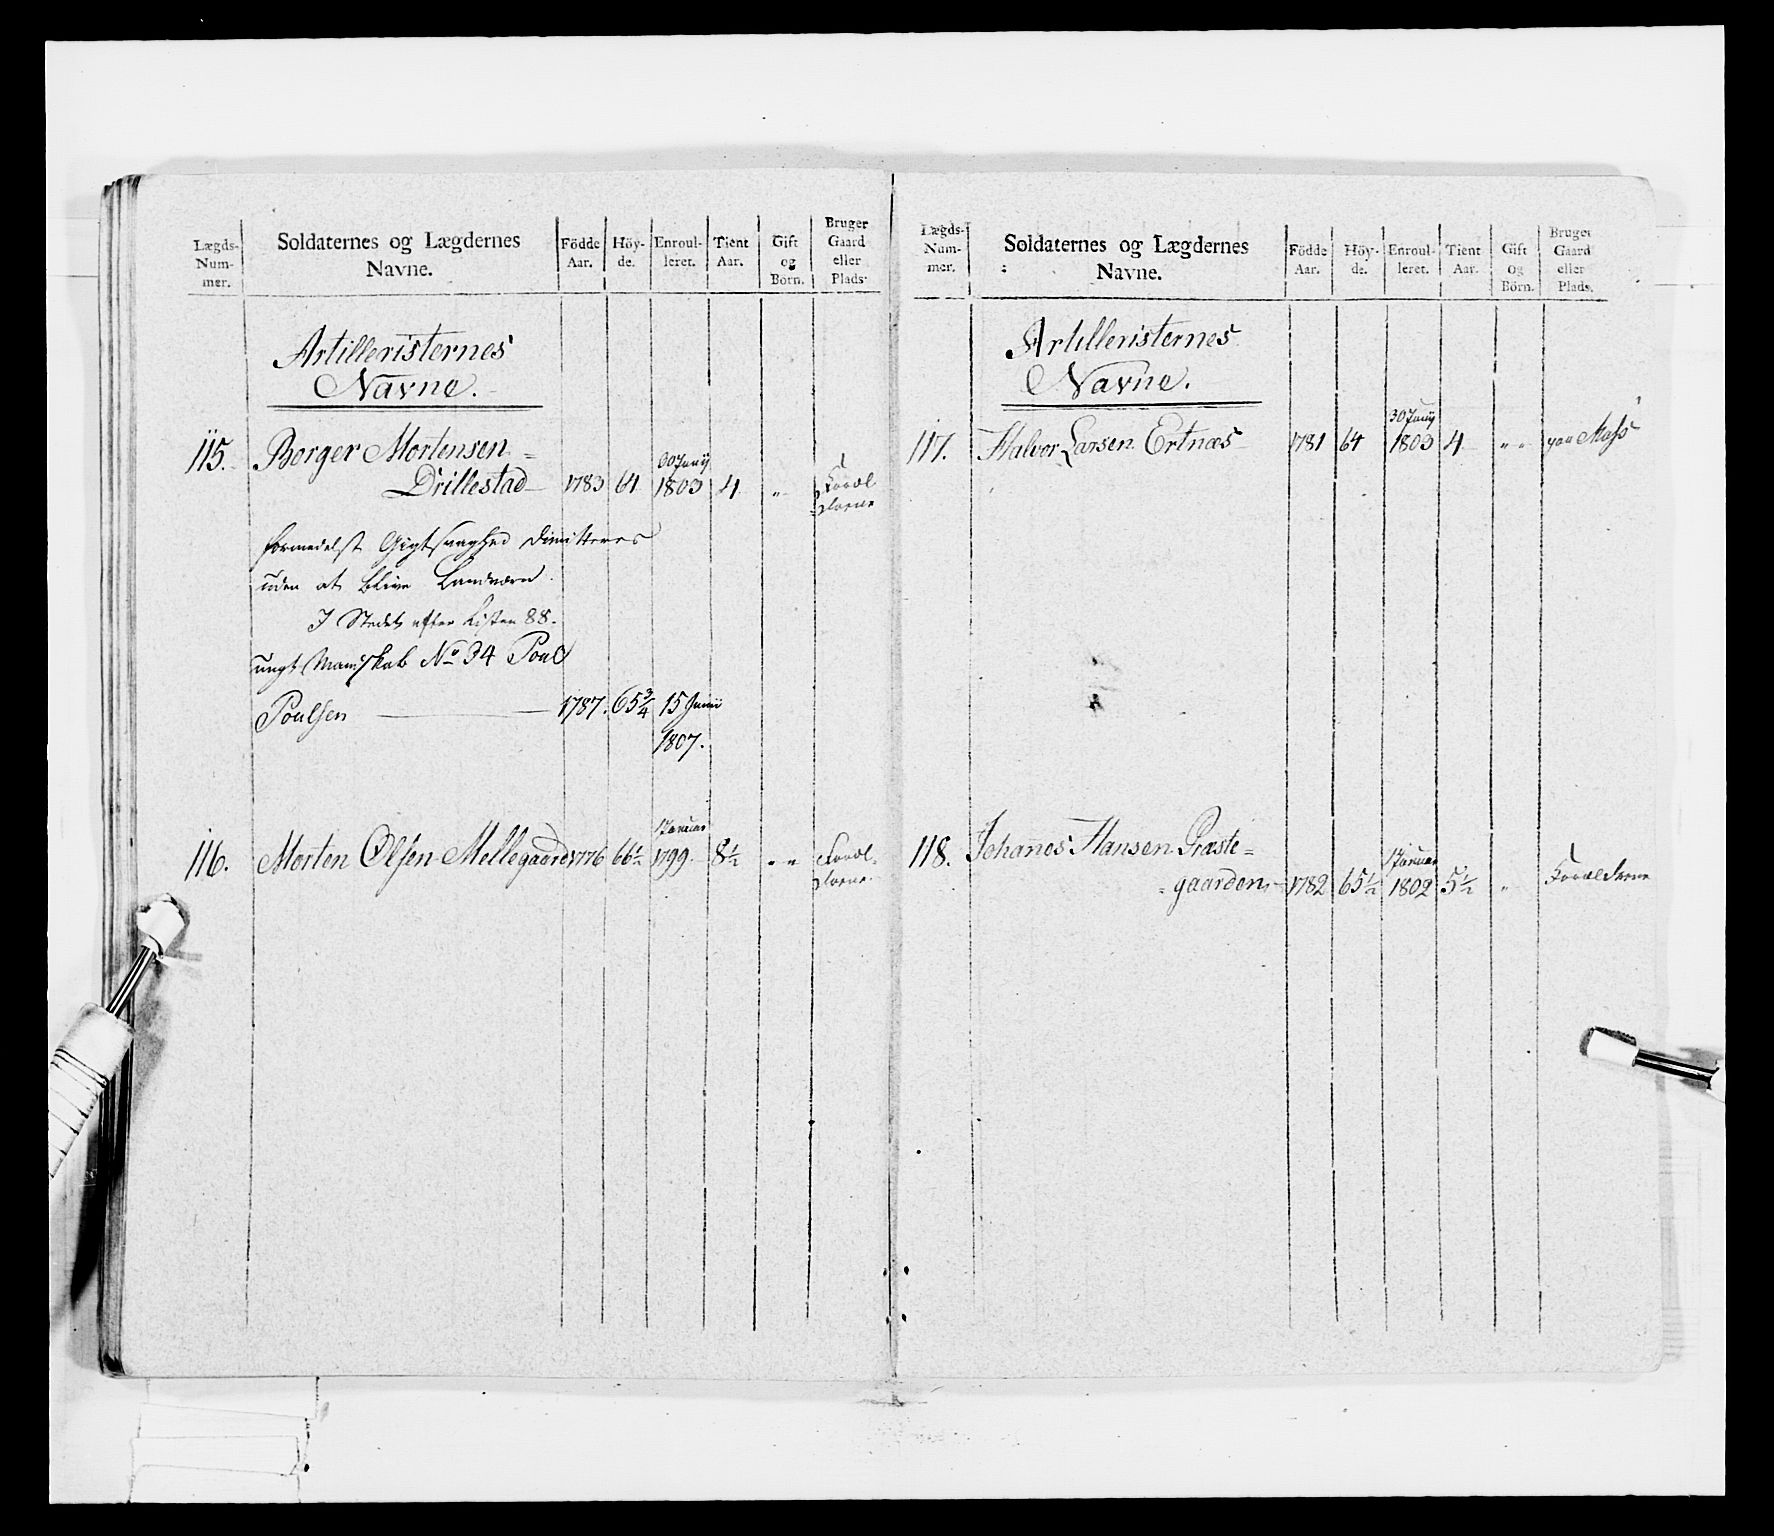 Lægds-
Num-
mer.
Soldaternes og Lægdernes
Navne.
Födde
Aar.
Höy-
de.
Enroul-
leret.
Tient
Aar.
Gift
og
Börn.
Bruger
Gaard
eller
Plads.
Artilleristernes
Navne.
115. Borger Mortensen
Drillestad 1783 64 30 Junij 1803 4 " Foræl
drene
formedelst Gigtsvaghed dimitteres
uden at blive Landværn.
I Stedet efter Listen 88.
ungt Mandskab No 34 Poul
Poulsen 1787. 65 3/4 15 Junii
1807.
116. Morten Olsen Mellegaard 1776 66 1/2 1 Januar 1799 8 1/2 " " Foræl-
drene.
Lægds-
Num-
mer.
Soldaternes og Lægdernes
Navne.
Födde
Aar.
Höy-
de.
Enroul-
leret.
Tient
Aar.
Gift
og
Börn.
Bruger
Gaard
eller
Plads.
Artilleristernes
Navne.
117. Halvor Larsen Ertnæs 1781 64 30 Junij 1803 4 " "
118. Johannes Hansen Præste-
gaarden 1782 65 1/2 1 Januar 1802 5 1/2 " Forældrene